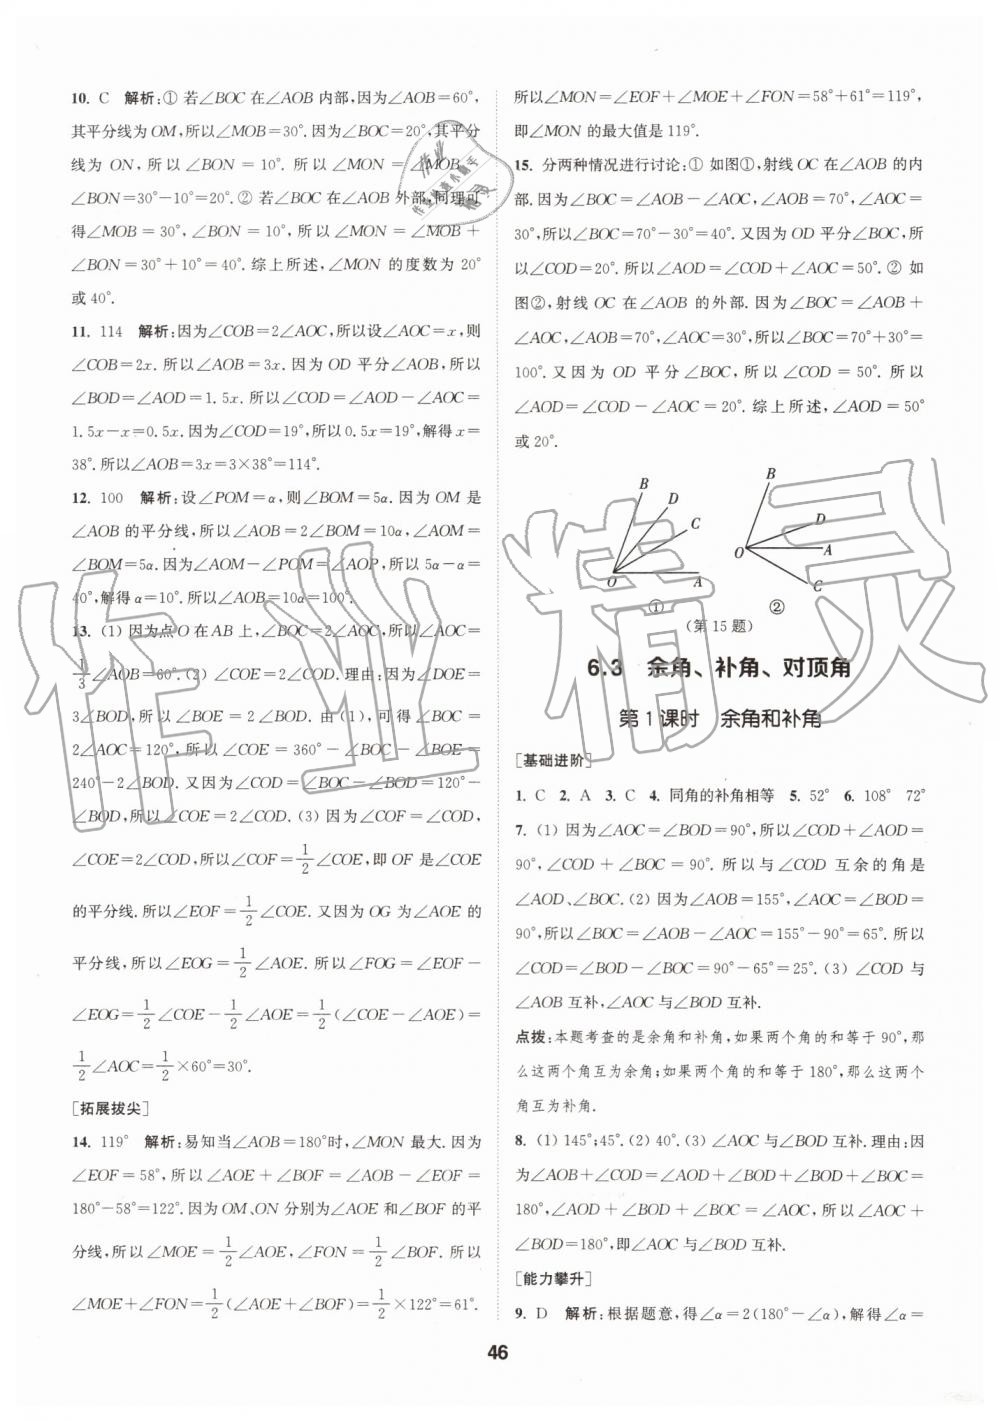 10. C 解析:① 若∠BOC 在∠AOB 内部,因为∠AOB=60°,
其平分线为 OM,所以∠MOB=30°.因为∠BOC=20°,其平分
线为 ON,所以∠BON=10°.所以∠MON=∠MOB-
∠BON=30°-10°=20°.② 若∠BOC 在∠AOB 外部,同理可
得∠MOB=30°,∠BON=10°,所以∠MON=∠MOB+
∠BON=30°+10°=40°.综上所述,∠MON 的度数为 20°
或 40°.
11. 114 解析:因为∠COB=2∠AOC,所以设∠AOC=x,则
∠COB=2x.所以∠AOB=3x.因为 OD 平分∠AOB,所以
∠BOD=∠AOD=1.5x.所以∠COD=∠AOD-∠AOC=
1.5x-x=0.5x.因为∠COD=19°,所以0.5x=19°,解得x=
38°.所以∠AOB=3x=3×38°=114°.
12. 100 解析:设∠POM=α,则∠BOM=5α.因为 OM 是
∠AOB 的平分线,所以∠AOB=2∠BOM=10α,∠AOM=
∠BOM=5α.因为∠AOM-∠POM=∠AOP,所以5α-α=
40°,解得 α=10°.所以∠AOB=10α=100°.
13. (1) 因为点O在AB上,∠BOC=2∠AOC,所以∠AOC=
1/3∠AOB=60°.(2) ∠COE=2∠COD.理由:因为∠DOE=
3∠BOD,所以∠BOE=2∠BOD.由(1),可得∠BOC=
2∠AOC=120°,所以∠COE=360°-∠BOC-∠BOE=
240°-2∠BOD.又因为∠COD=∠BOC-∠BOD=120°-
∠BOD,所以∠COE=2∠COD.(3) 因为∠COF=∠COD,
∠COE=2∠COD,所以∠COF=1/2∠COE,即 OF 是∠COE
的平分线.所以∠EOF=1/2∠COE.又因为 OG 为∠AOE 的
平分线,所以∠EOG=1/2∠AOE.所以∠FOG=∠EOF-
∠EOG=1/2∠COE-1/2∠AOE=1/2(∠COE-∠AOE)=
1/2∠AOC=1/2×60°=30°.
[拓展拔尖]
14. 119° 解析:易知当∠AOB=180°时,∠MON 最大.因为
∠EOF=58°,所以∠AOE+∠BOF=∠AOB-∠EOF=
180°-58°=122°.因为 OM、ON 分别为∠AOE 和∠BOF 的平
分线,所以∠MOE=1/2∠AOE,∠FON=1/2∠BOF.所以
∠MOE+∠FON=1/2(∠AOE+∠BOF)=1/2×122°=61°.
所以∠MON=∠EOF+∠MOE+∠FON=58°+61°=119°,
即∠MON 的最大值是 119°.
15. 分两种情况进行讨论:① 如图①,射线 OC 在∠AOB 的内
部.因为∠BOC=∠AOB-∠AOC,∠AOB=70°,∠AOC=
30°,所以∠BOC=70°-30°=40°.又因为 OD 平分∠BOC,所
以∠COD=20°.所以∠AOD=∠COD+∠AOC=50°.② 如
图②,射线 OC 在∠AOB 的外部.因为∠BOC=∠AOB+
∠AOC,∠AOB=70°,∠AOC=30°,所以∠BOC=70°+30°=
100°.又因为 OD 平分∠BOC,所以∠COD=50°.所以
∠AOD=∠COD-∠AOC=20°.综上所述,∠AOD=50°
或 20°.
B
D
C
O
A
①
B
D
O
A
C
②
(第 15 题)
6.3 余角、补角、对顶角
第 1 课时 余角和补角
[基础进阶]
1. C 2. A 3. C 4. 同角的补角相等 5. 52° 6. 108° 72°
7. (1) 因为∠AOC=∠BOD=90°,所以∠COD+∠AOD=
90°,∠COD+∠BOC=90°.所以与∠COD 互余的角是
∠AOD、∠BOC.(2) 因为∠AOB=155°,∠AOC=∠BOD=
90°,所以∠BOC=∠AOB-∠AOC=155°-90°=65°.所以
∠COD=∠BOD-∠BOC=90°-65°=25°.(3) ∠COD 与
∠AOB 互补,∠AOC 与∠BOD 互补.
点拨:本题考查的是余角和补角,如果两个角的和等于 90°,那
么这两个角互为余角;如果两个角的和等于 180°,那么这两个
角互为补角.
8. (1) 145°;45°.(2) 40°.(3) ∠AOC 与∠BOD 互补.理由:因
为∠AOB+∠COD=∠AOD+∠BOD+∠BOD+∠BOC=
180°,∠AOD+∠BOD+∠BOC=∠AOC,所以∠AOC+
∠BOD=180°,即∠AOC 与∠BOD 互补.
[能力攀升]
9. D 解析:根据题意,得∠α=2(180°-∠α),解得∠α=
46
作业精灵